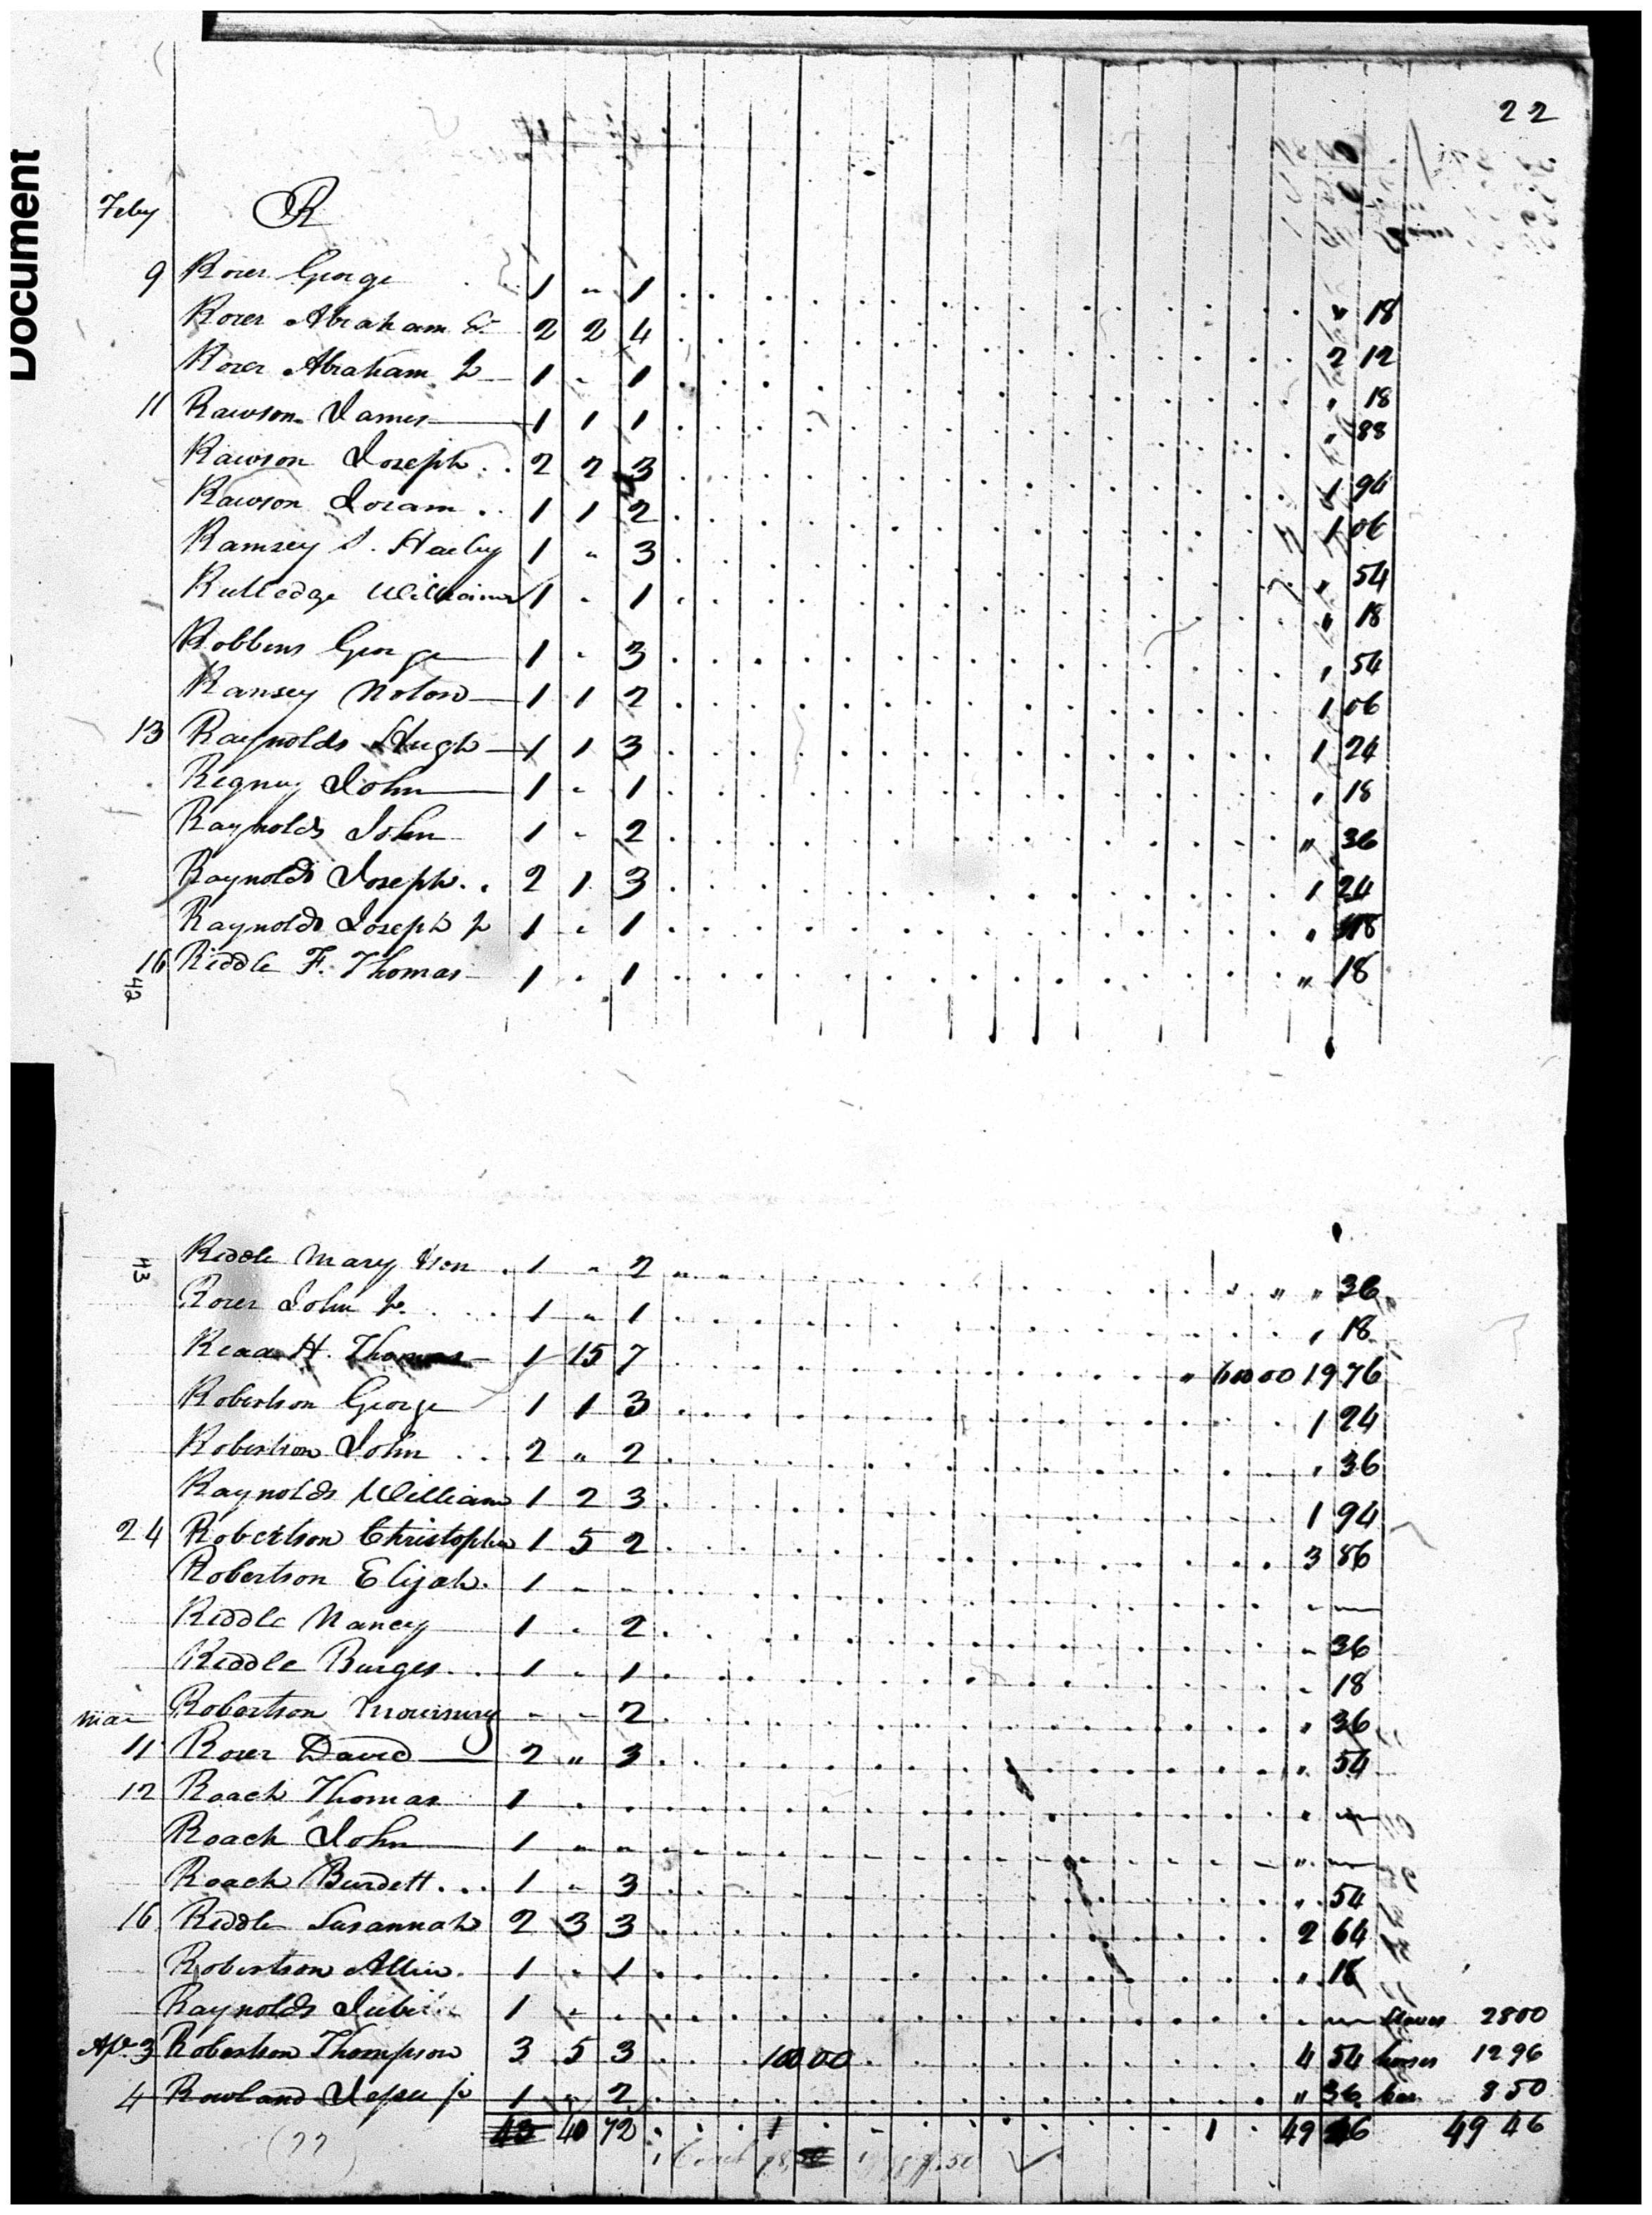 Document
22
Feby R
9 Rorer George 1 " 1 " 18
Rorer Abraham Sr 2 2 4 2 12
Rorer Abraham Jr 1 - 1 " 18
11 Rawson James 1 1 1 " 88
Rawson Joseph 2 2 3 1 94
Rawson Joram 1 1 2 1 06
Ramsey S. Haily 1 " 3 " 54
Rutledge William 1 - 1 " 18
Robbins George 1 - 3 " 54
Ramsey Noton 1 1 2 1 06
13 Raynolds Hugh 1 1 3 1 24
Rigney John 1 - 1 " 18
Raynolds John 1 - 2 " 36
Raynolds Joseph 2 1 3 1 24
Raynolds Joseph Jr 1 - 1 " 18
16 Riddle F. Thomas 1 - 1 " 18
42
43
Riddle Mary & son 1 " 2 " " 36
Rorer John Jr. 1 " 1 " 18
Read H. Thomas 1 15 7 " 600 00 19 76
Robertson George 1 1 3 1 24
Robertson John 2 " 2 " 36
Raynolds William 1 2 3 1 94
24 Robertson Christopher 1 5 2 3 86
Robertson Elijah 1 - - - —
Riddle Nancy 1 - 2 - 36
Riddle Burges 1 - 1 - 18
Mar Robertson - - 2 " 36
11 Rorer David 2 " 3 " 54
12 Roach Thomas 1 - " —
Roach John 1 - - " —
Roach Burdett 1 - 3 " 54
16 Riddle Susannah 2 3 3 2 64
Robertson Allin 1 - 1 " 18
Raynolds 1 - - - — Slaves 2800
Apl. 3 Robertson Thompson 3 5 3 100 00 4 54 horses 12 96
4 Rowland Jesse Jr 1 - 2 " 36 8 50
43 40 72 1 1 49 26 49 46
(22)